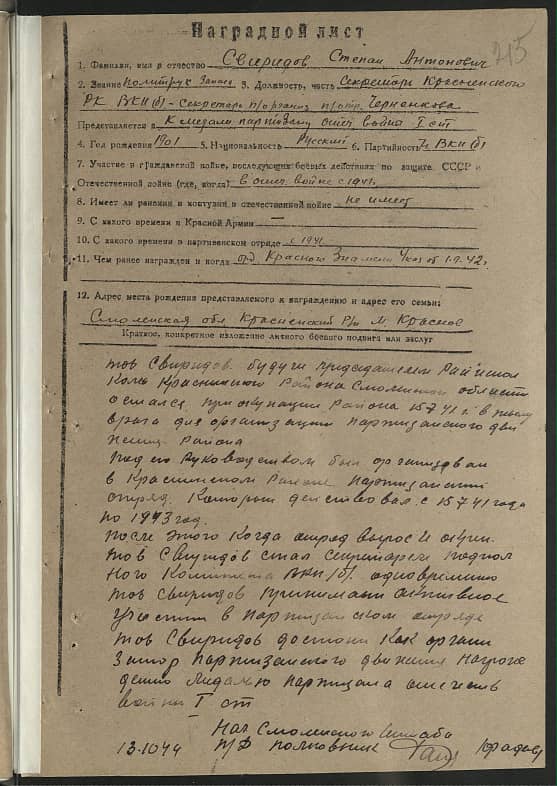 215
Наградной лист
1. Фамилия, имя и отчество Свиридов Степан Антонович
2. Звание политрук запаса 3. Должность, часть Секретарь Краснинского
РК ВКП(б) - Секретарь п/организ п/отр. Черненкова
Представляется к медали партизану отеч война I ст
4. Год рождения 1901 5. Национальность Русский 6. Партийность чл ВКП(б)
7. Участие в гражданской войне, последующих боевых действиях по защите СССР и
Отечественной войне (где, когда) в отеч. войне с 1941.
8. Имеет ли ранения и контузии в отечественной войне не имеет
9. С какого времени в Красной Армии —
10. С какого времени в партизанском отряде с 1941
11. Чем ранее награжден и когда орд Красного Знамени Указ от 1.9.42г
12. Адрес места рождения представляемого к награждению и адрес его семьи:
Смоленская обл Краснинский р/н м. Красное
Краткое, конкретное изложение личного боевого подвига или заслуг
тов Свиридов будучи председателем Райиспол
кома Краснинского района Смоленской области
остался при оккупации района 15.7.41 г. в тылу
врага для организации партизанского дви
жения района
Под его руководством был организован
в Краснинском районе партизанский
отряд. Который действовал с 15.7.41 года
по 1943 год.
После этого когда отряд вырос
тов Свиридов стал секретарем подпол
ного Комитета ВКП(б). одновременно
тов Свиридов принимал активное
участие в партизанском отряде
тов Свиридов достоин как органи
затор партизанского движения награж
дения медалью партизана отечеств
войны I ст
Нач Смоленского штаба
13.10.44 п/д полковник